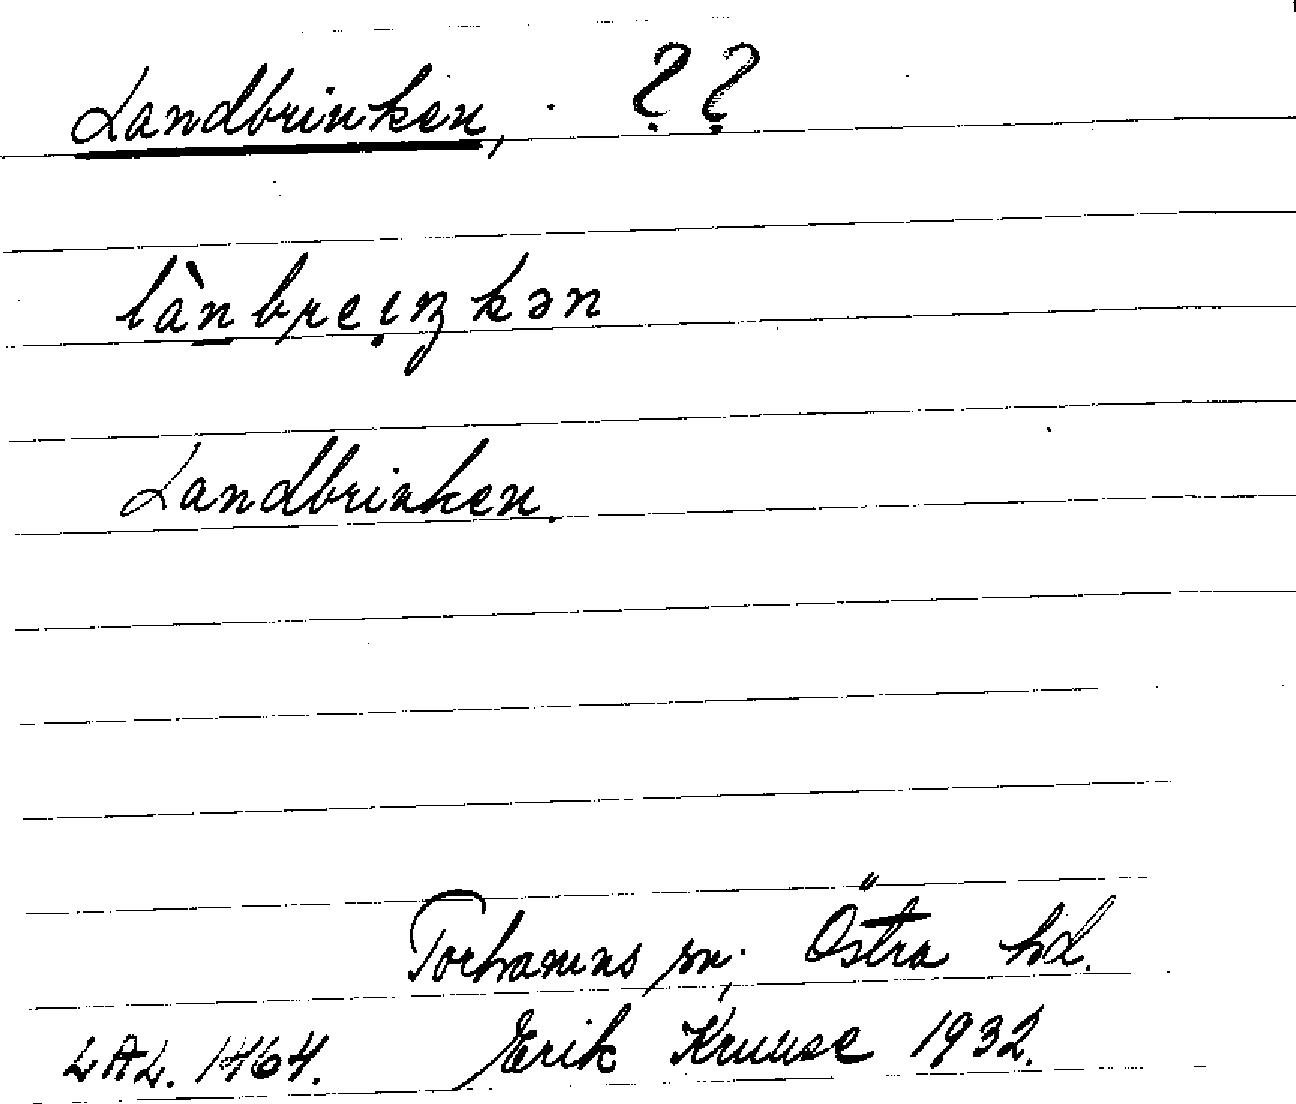 Landbrinken, ??
lànbreịŋkən
Landbrinken.
Torhamns sn; Östra hd.
LAL. 1464. Erik Kruuse 1932.